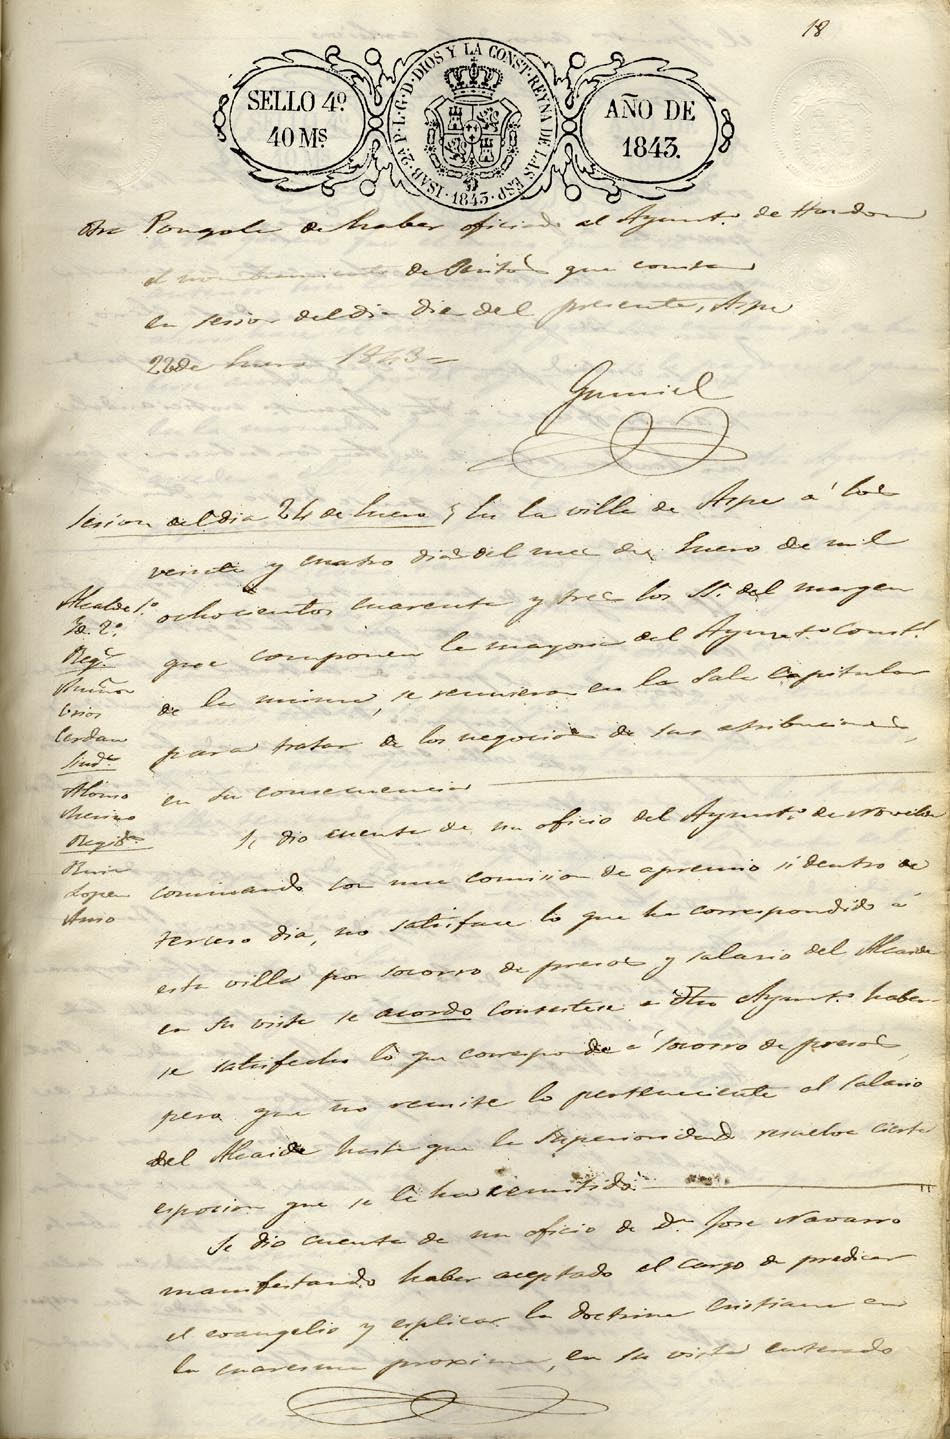 18
SELLO 4º
40 Mˢ
ISAB. 2ª P. L. G. D. DIOS Y LA CONST. REYNA DE LAS ESP. 1843.
AÑO DE
1843.
de haber oficiado al Ayuntº de Hondon
el nombramiento de que consta
en sesion del dia diez del presente, Aspe
22 de Enero 1843=
Gumiel
Sesion del dia 24 de Enero En la villa de Aspe á los
veinte y cuatro dias del mes de Enero de mil
ochocientos cuarenta y tres los SS. del margen
que componen la mayoria del Ayuntº Constl
de la misma, se reunieron en la Sala Capitular
para tratar de los negocios de sus atribuciones,
en su consecuencia
Alcalde 1º
Id. 2º
Regs
Cerdan
Sinds
Alonso
Merino
Regids
Lopez
Se dio cuenta de un oficio del Ayuntº de Novelda
conminando con una comision de apremio si dentro de
tercero dia, no satisface lo que ha correspondido á
esta villa por socorro de presos y salario del Alcaide
en su vista se acordo contestese a dho Ayuntº haber-
se satisfecho lo que corresponde á socorro de presos,
pero que no remite lo perteneciente al salario
del Alcaide hasta que la Superioridad resuelva cierta
esposicion que se le ha remitido
Se dio cuenta de un oficio de Dn Jose Navarro
manifestando haber aceptado el cargo de predicar
el evangelio y esplicar la doctrina Cristiana en
la cuaresma proxima, en su vista enterado